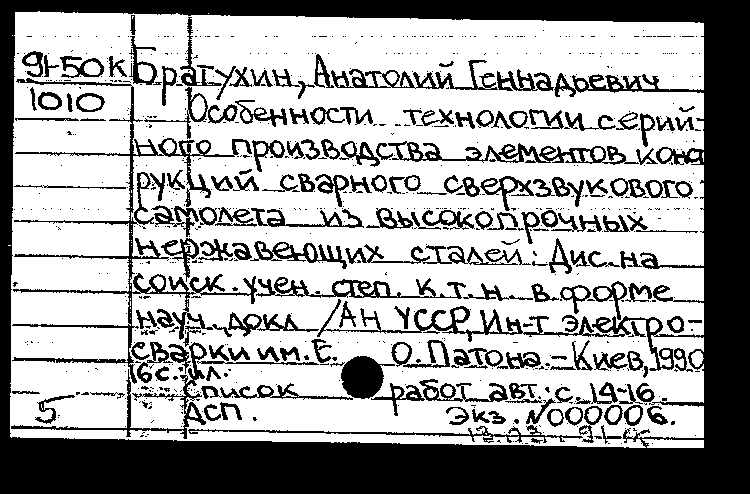 91-50К Братухин, Анатолий Геннадьевич
1010 Особенности технологии серий-
ного производства элементов конст
рукций сварного сверхзвукового
самолета из высокопрочных
нержавеющих сталей: Дис. на
соиск. учен. степ. к.т.н. в форме
науч. докл /АН УССР, Ин-т электро-
сварки им. Е. О. Патона. - Киев, 1990
16 с.: ил.
Список работ авт.: с. 14-16.
5 ДСП. Экз. №000006.
13.03.91